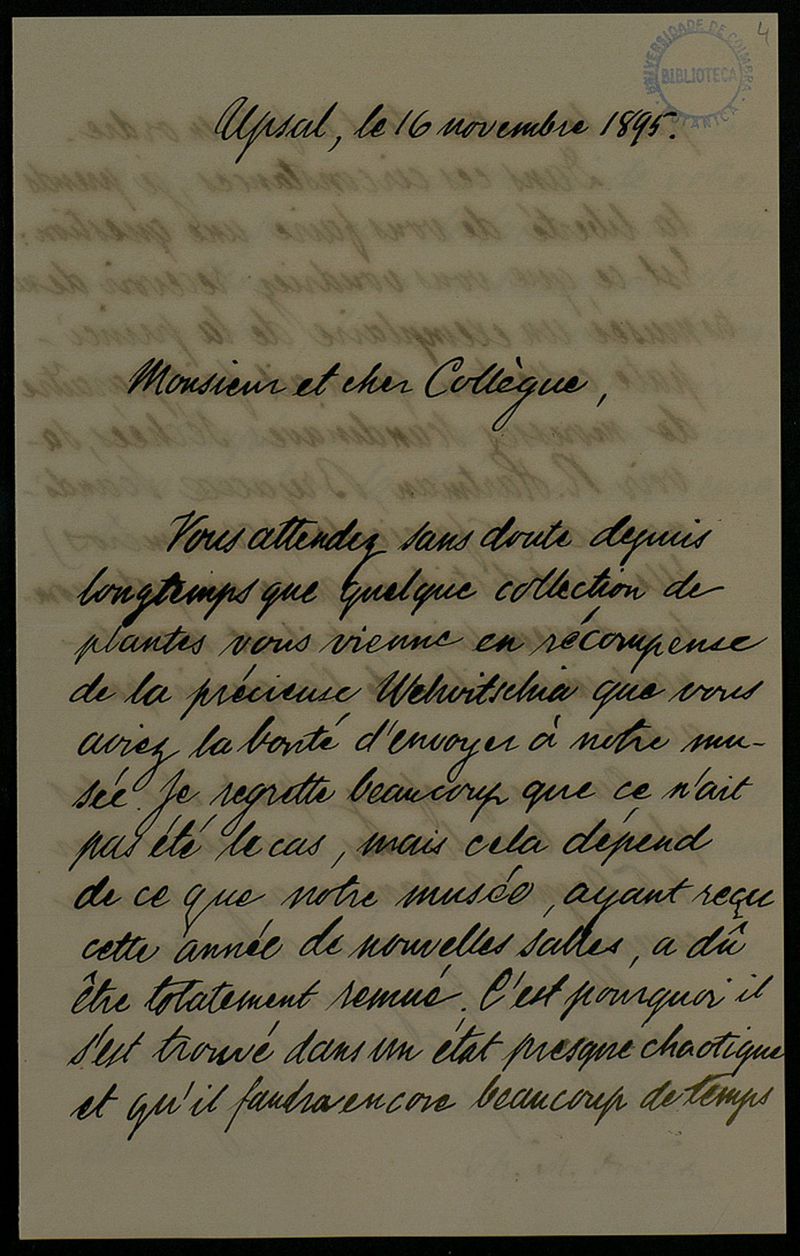 4
UNIVERSIDADE DE COIMBRA
BIBLIOTECA
BOTANICA
Upsal, le 16 novembre 1895.
Monsieur et cher Collègue,
Vous attendez sans doute depuis
longtemps que quelque collection de
plantes vous vienne en récompense
de la précieuse Welwitschia que vous
aviez la bonté d'envoyer à notre mu-
sée. Je regrette beaucoup que ce n'ait
pas été le cas, mais cela dépend
de ce que notre musée, ayant reçu
cette année de nouvelles salles, a dû
être totalement remué. C'est pourquoi il
s'est trouvé dans un état presque chaotique
et qu'il faudra encore beaucoup de temps